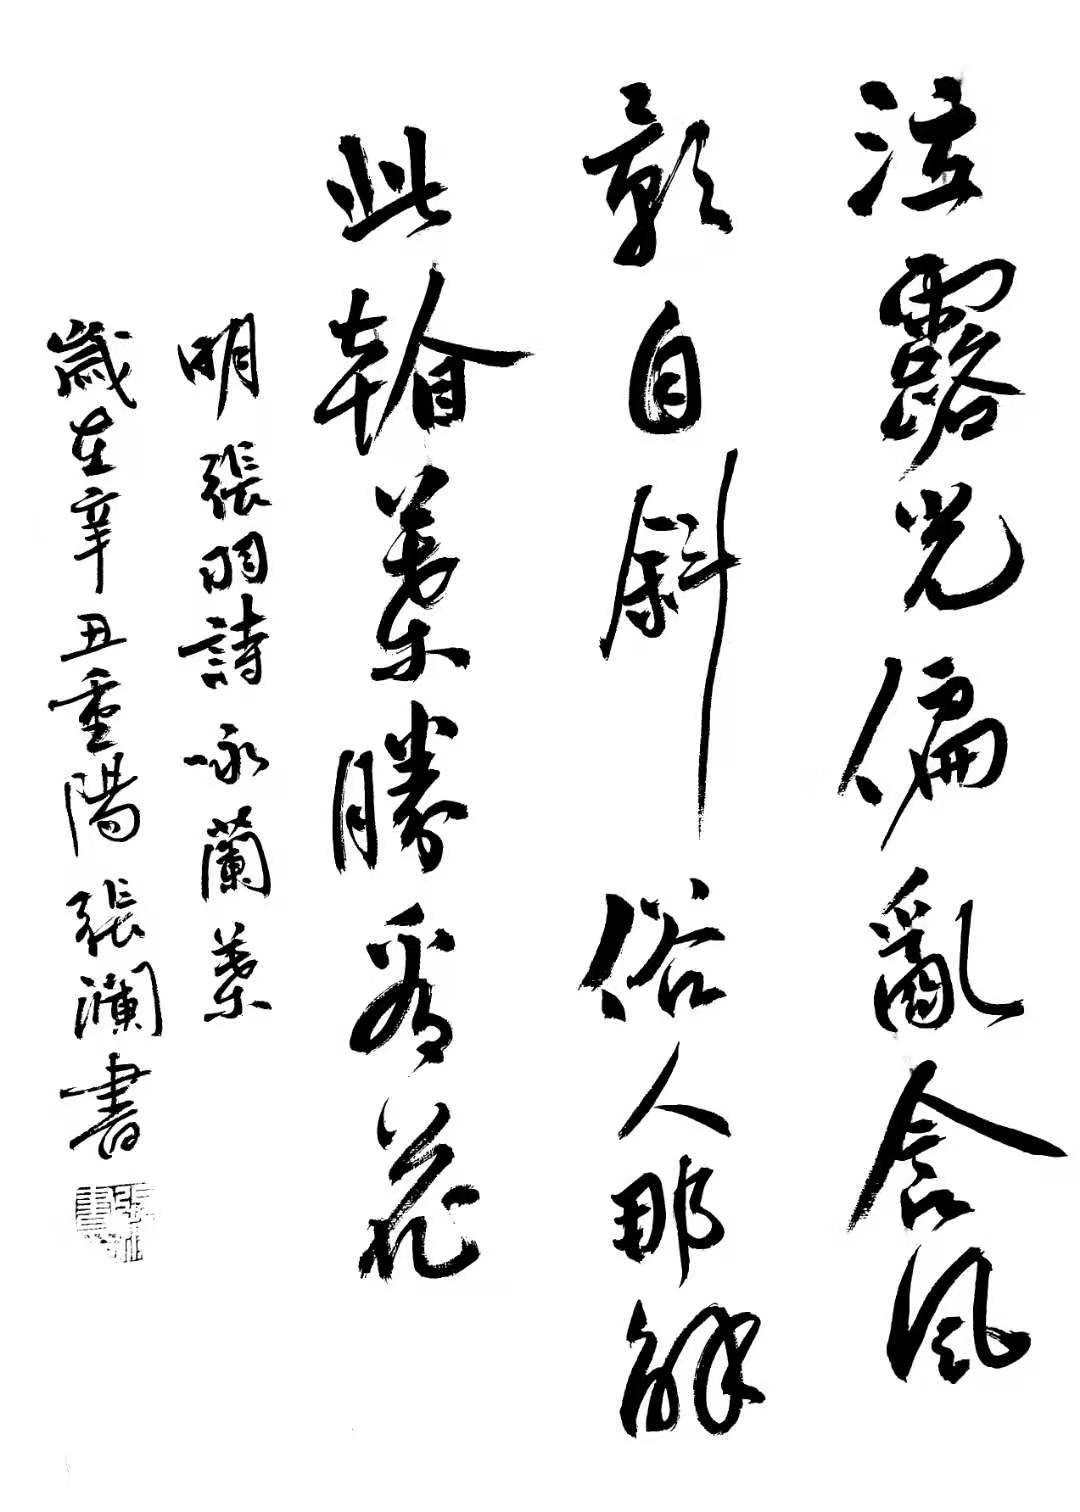 泣露光偏亂含風
影自斜俗人那解
此看葉勝看花
明張羽詩咏蘭葉
歲在辛丑重陽張瀾書